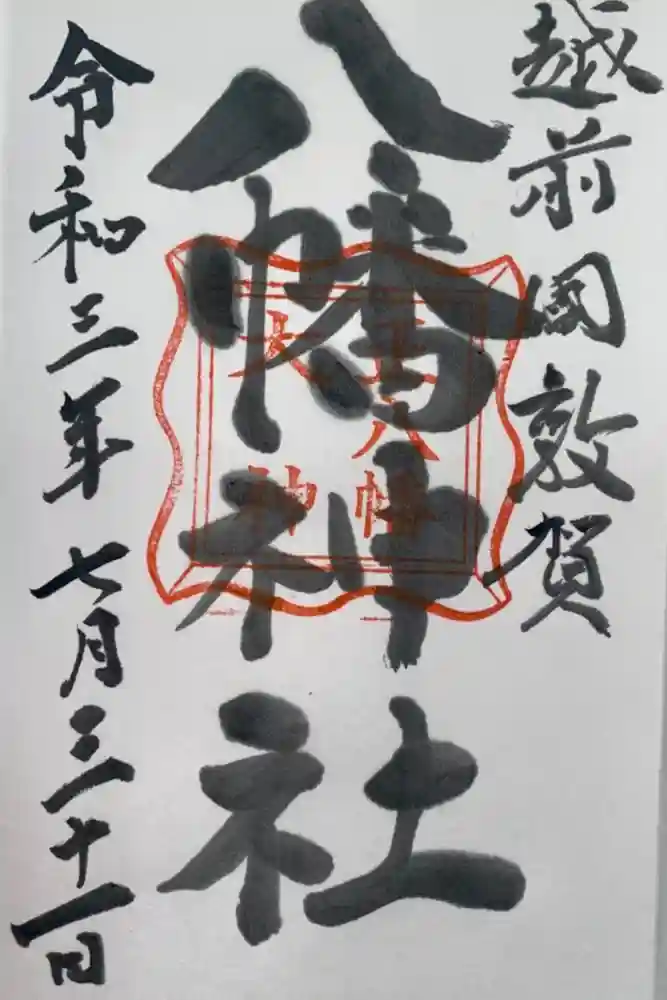 越前國敦賀
八幡神社
八幡
神
令和三年七月三十一日